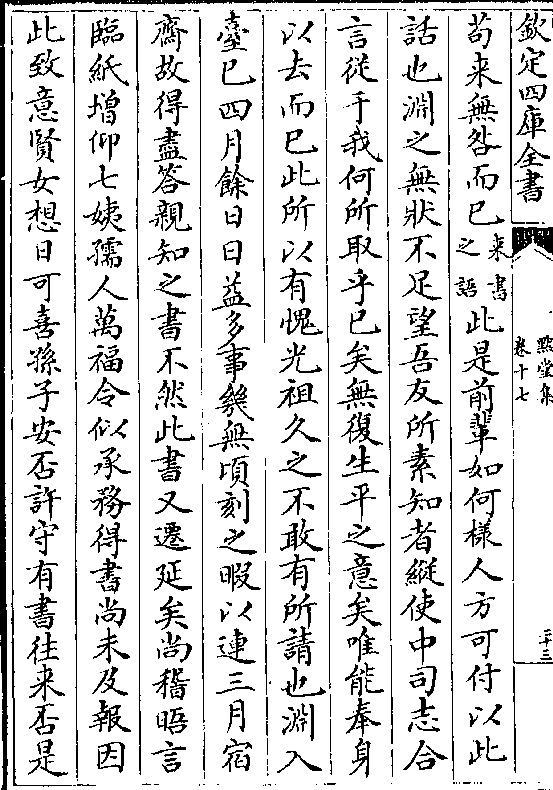 欽定四庫全書
默堂集
卷十七
二十三
苟来無咎而已来書之語此是前輩如何様人方可付以此
話也淵之無狀不足望吾友所素知者縱使中司志合
言從于我何所取乎已矣無復生平之意矣唯能奉身
以去而已此所以有愧光祖久之不敢有所請也淵入
臺已四月餘日日益多事㡬無頃刻之暇以連三月宿
齋故得盡答親知之書不然此書又遷延矣尚稽晤言
臨紙增仰七姨孺人萬福令似承務得書尚未及報因
此致意賢女想日可喜孫子安否許守有書往来否是